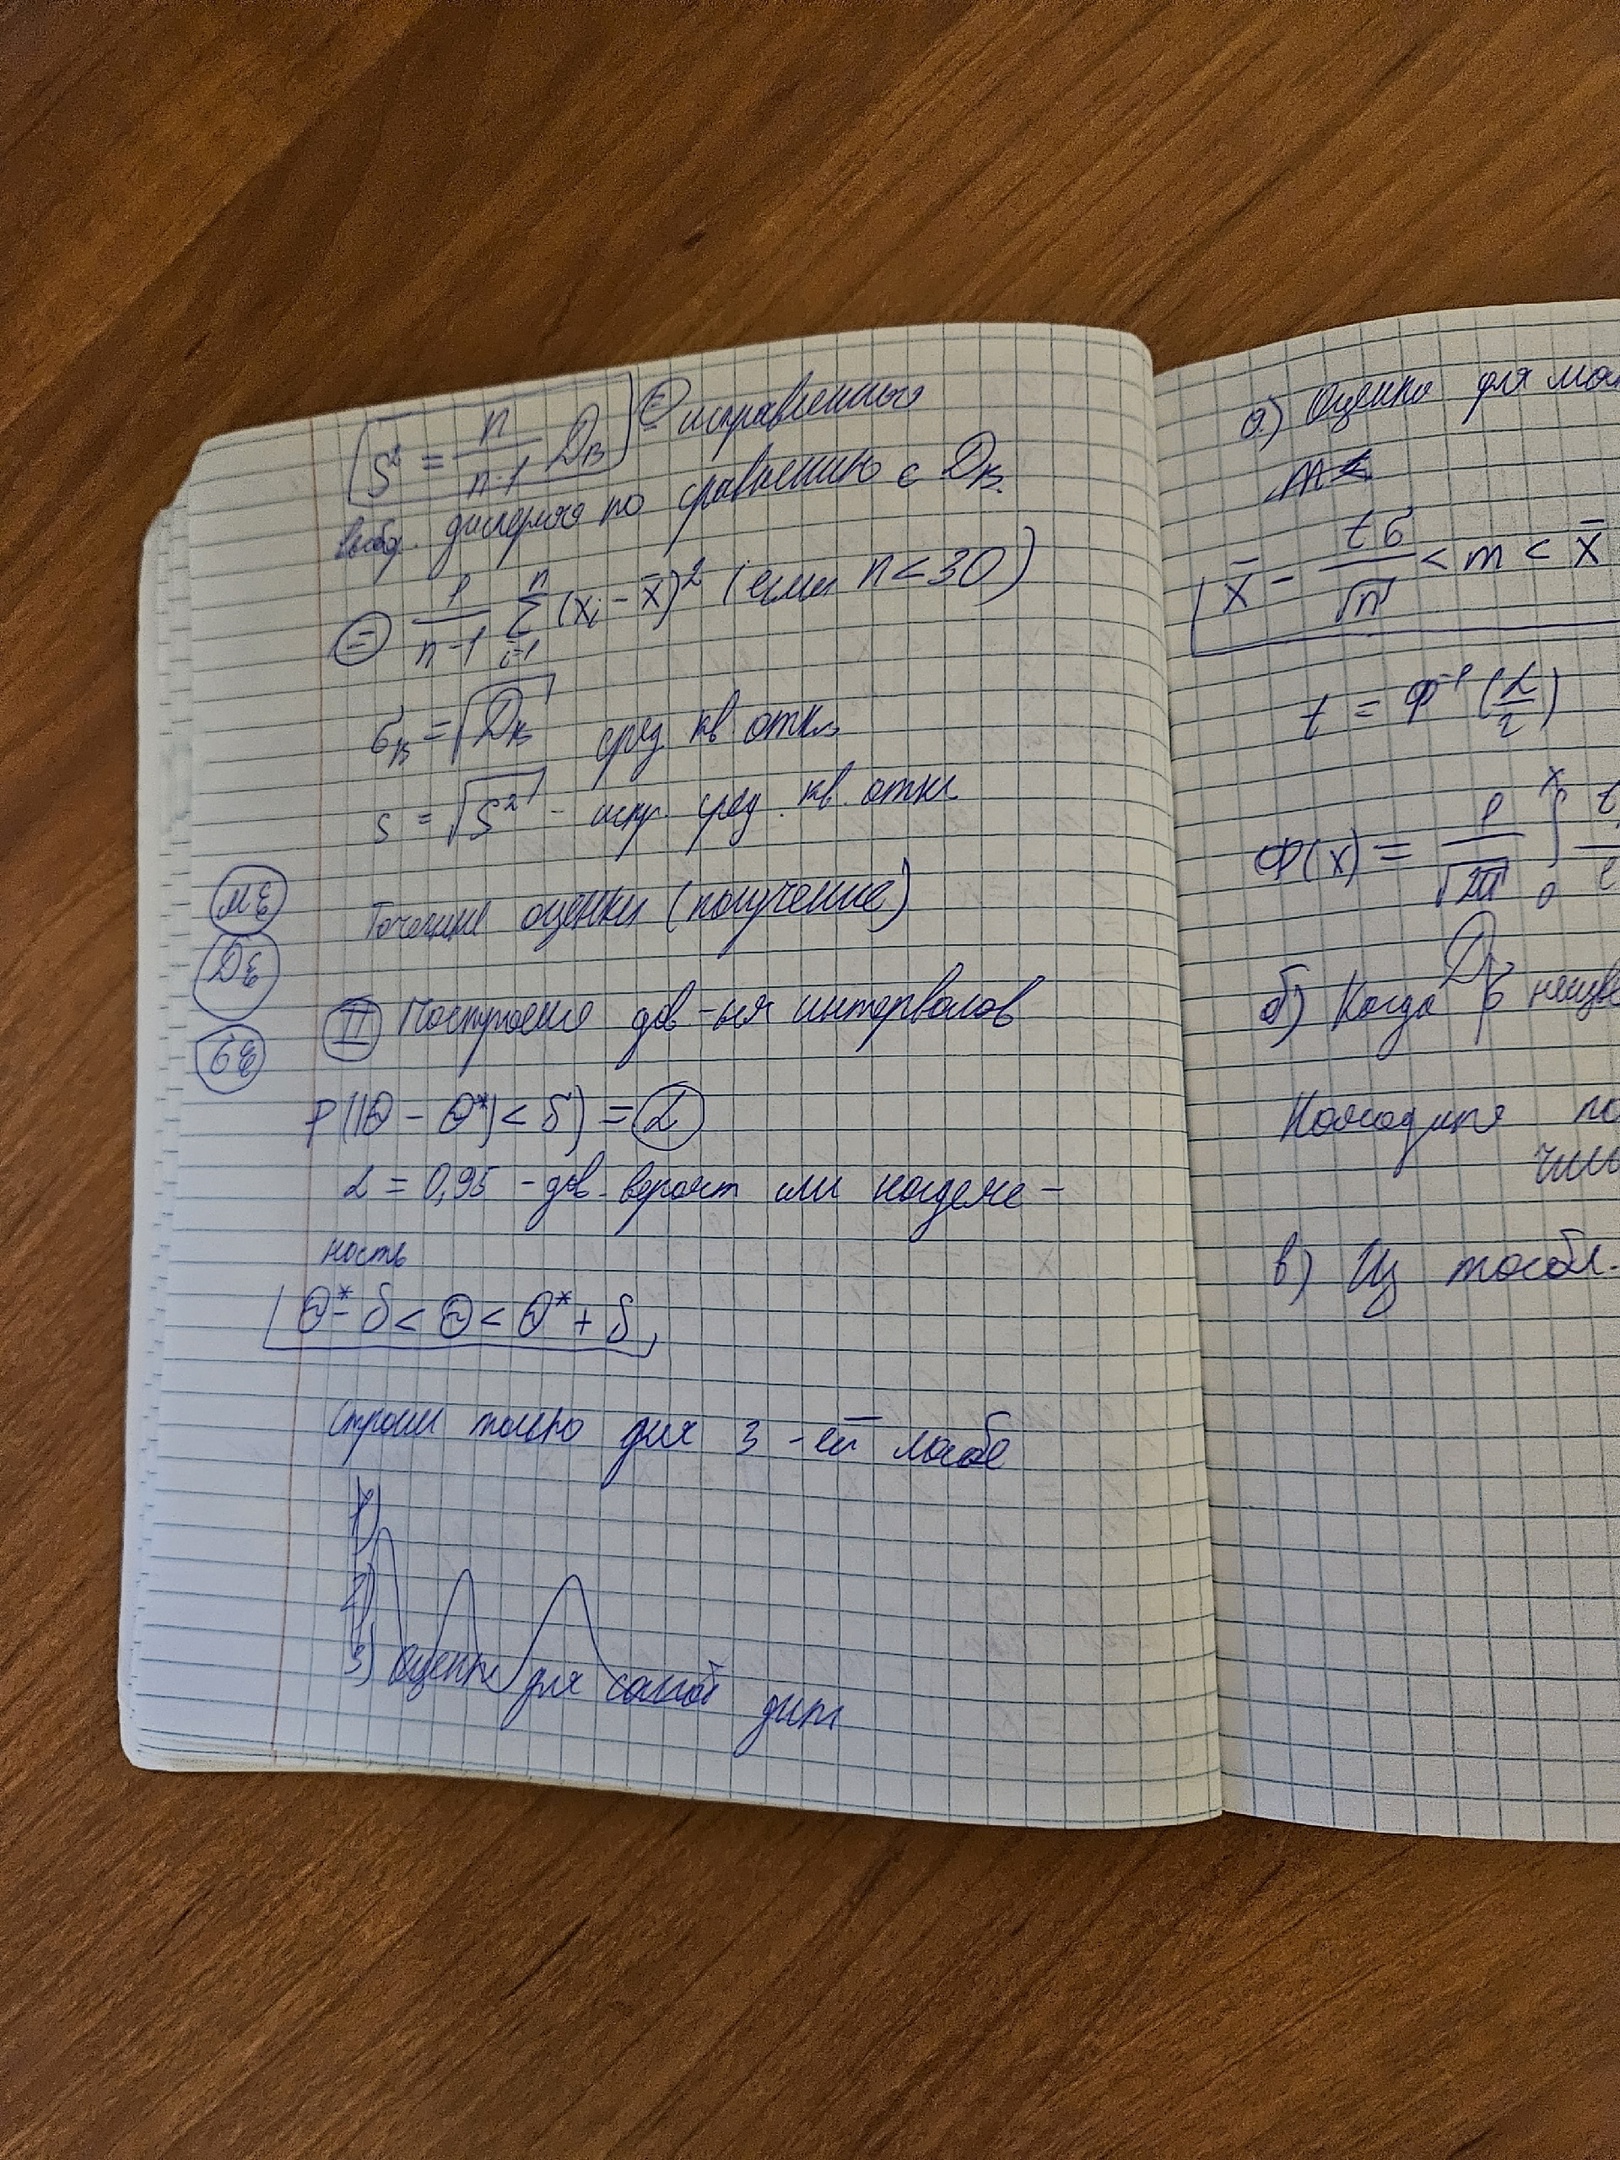 S² = n/(n-1) Dв ⊜ исправленная
выбор. дисперсия по сравнению с Dв.
⊜ 1/(n-1) Σ_{i=1}^{n} (xi - x̄)² (если n<30)
σв = √Dв сред кв. откл
s = √S² - испр. сред. кв. откл
Mξ
Точечные оценки (получение)
Dξ
σξ
II Построение дов-ых интервалов
P(|Θ - Θ*| < δ) = α
α = 0,95 - дов. вероят или надеж-
ность
Θ* - δ < Θ < Θ* + δ
Строим только для 3-ей лабы
1)
2)
3) Оценка для самой дисп
а) Оценка для
m
x̄ - tσ/√n < m < x̄
t = Φ⁻¹(α/2)
Φ(x) = 1/√2π ∫₀ˣ
б) Когда
Находим
в) Из табл.